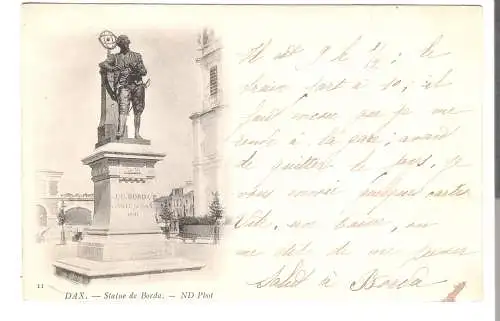 J. C. BORDA
11
DAX. — Statue de Borda. — ND Phot
Il est 9 h 1/2 ; le
train part à 10 ; il
faut que je me
rende à la gare ; avant
de quitter le pays, je
vous envoie quelques cartes
Vite, un baiser, ou
un de me
Salut à Borda